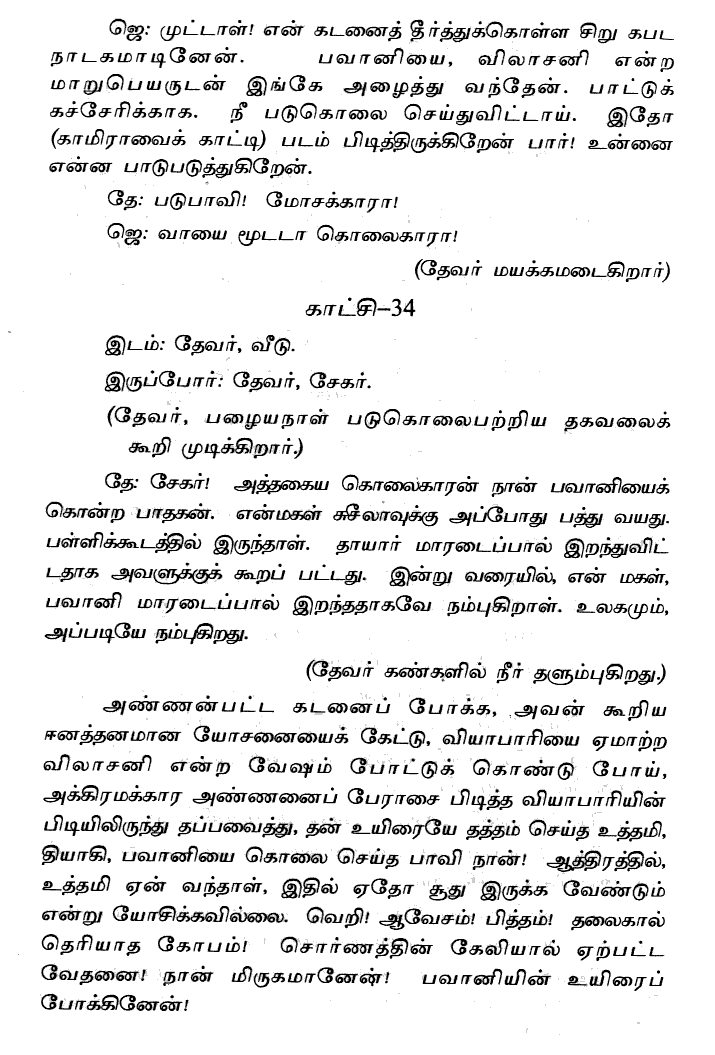 ஜெ: முட்டாள்! என் கடனைத் தீர்த்துக்கொள்ள சிறு கபட
நாடகமாடினேன். பவானியை, விலாசனி என்ற
மாறுபெயருடன் இங்கே அழைத்து வந்தேன். பாட்டுக்
கச்சேரிக்காக. நீ படுகொலை செய்துவிட்டாய். இதோ
(காமிராவைக் காட்டி) படம் பிடித்திருக்கிறேன் பார்! உன்னை
என்ன பாடுபடுத்துகிறேன்.
தே: படுபாவி! மோசக்காரா!
ஜெ: வாயை மூடடா கொலைகாரா!
(தேவர் மயக்கமடைகிறார்)
காட்சி-34
இடம்: தேவர், வீடு.
இருப்போர்: தேவர், சேகர்.
(தேவர், பழையநாள் படுகொலைபற்றிய தகவலைக்
கூறி முடிக்கிறார்.)
தே: சேகர்! அத்தகைய கொலைகாரன் நான் பவானியைக்
கொன்ற பாதகன். என்மகள் சுசீலாவுக்கு அப்போது பத்து வயது.
பள்ளிக்கூடத்தில் இருந்தாள். தாயார் மாரடைப்பால் இறந்துவிட்
டதாக அவளுக்குக் கூறப் பட்டது. இன்று வரையில், என் மகள்,
பவானி மாரடைப்பால் இறந்ததாகவே நம்புகிறாள். உலகமும்,
அப்படியே நம்புகிறது.
(தேவர் கண்களில் நீர் தளும்புகிறது.)
அண்ணன்பட்ட கடனைப் போக்க, அவன் கூறிய
ஈனத்தனமான யோசனையைக் கேட்டு, வியாபாரியை ஏமாற்ற
விலாசனி என்ற வேஷம் போட்டுக் கொண்டு போய்,
அக்கிரமக்கார அண்ணனைப் பேராசை பிடித்த வியாபாரியின்
பிடியிலிருந்து தப்பவைத்து, தன் உயிரையே தத்தம் செய்த உத்தமி,
தியாகி, பவானியை கொலை செய்த பாவி நான்! ஆத்திரத்தில்,
உத்தமி ஏன் வந்தாள், இதில் ஏதோ சூது இருக்க வேண்டும்
என்று யோசிக்கவில்லை. வெறி! ஆவேசம்! பித்தம்! தலைகால்
தெரியாத கோபம்! சொர்ணத்தின் கேலியால் ஏற்பட்ட
வேதனை! நான் மிருகமானேன்! பவானியின் உயிரைப்
போக்கினேன்!